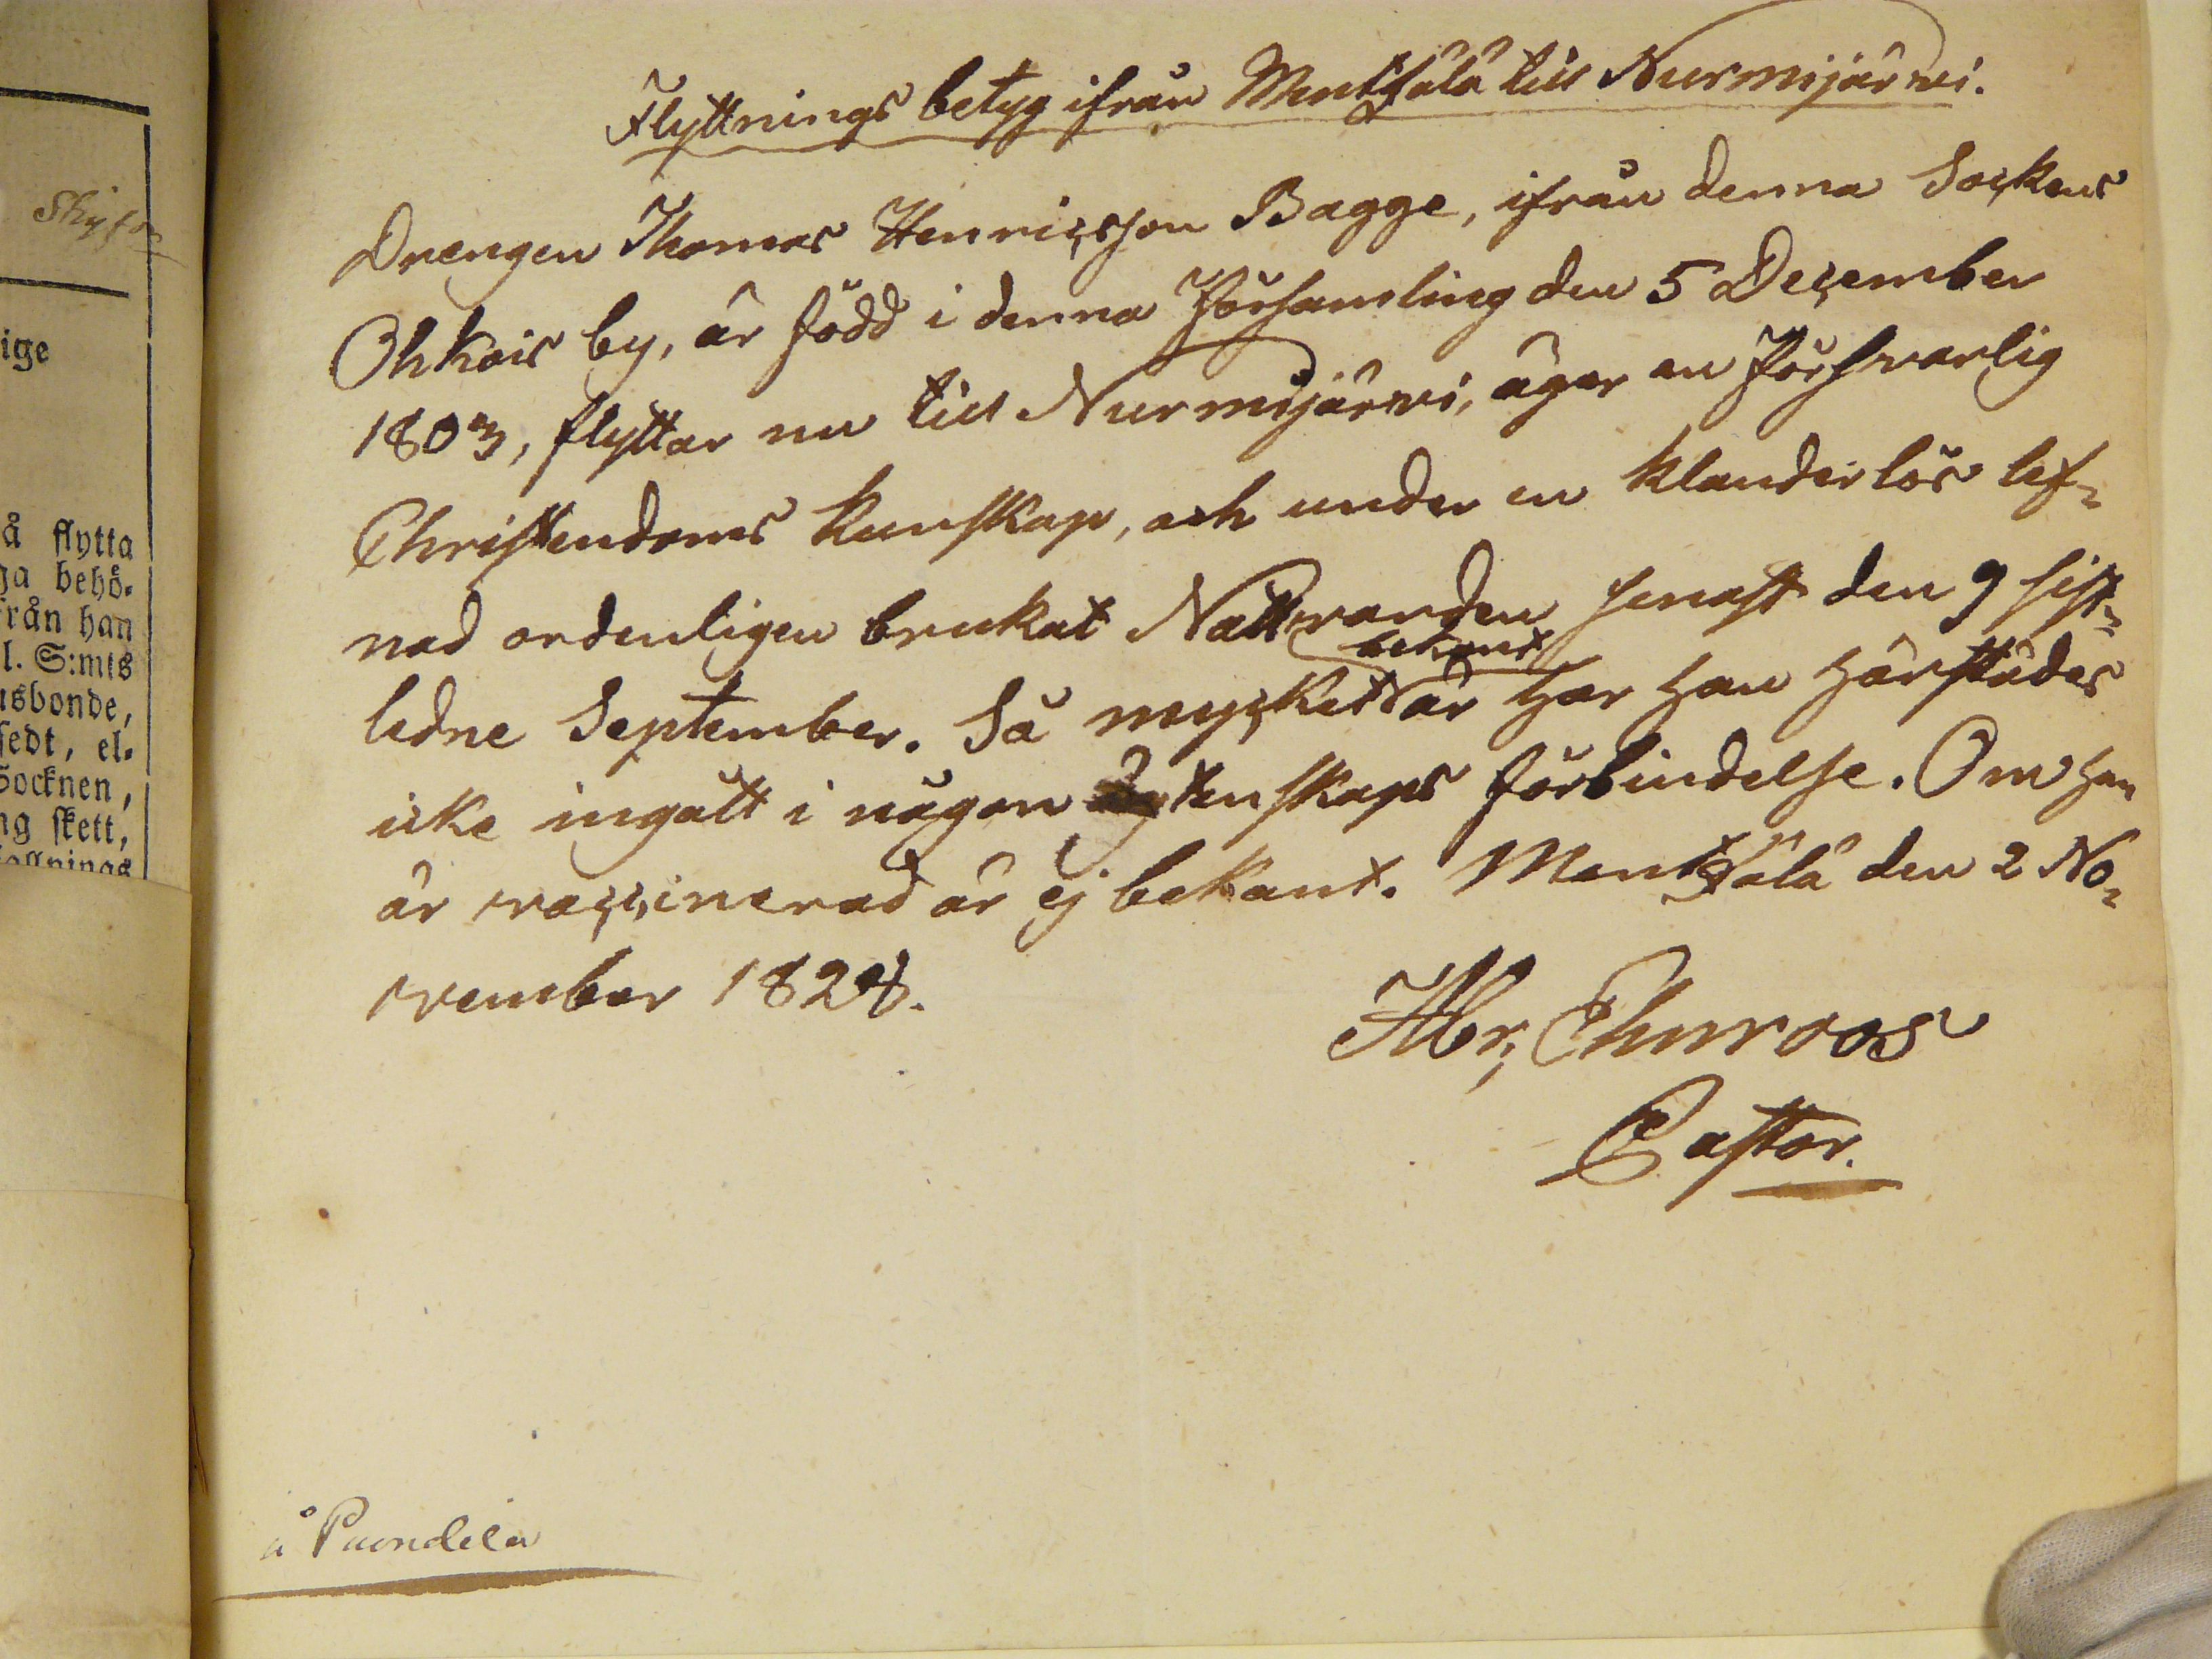 Skjf
ige
å flytta
ga behö-
från han
l. S:mts
usbonde,
sedt, el-
Socknen,
ng skett,
Flyttnings betyg ifrån Mentsälä till Nurmijärvi.
Drengen Thomas Henricsson Bagge, ifrån denna Sockens
Ohkois by, är född i denna Församling den 5 December
1803, flyttar nu till Nurmijärvi, äger en försvarlig
Christendoms kunskap, och under en klanderlös lef-
nad ordenligen brukat Nattvarden senast den 9 sist-
ledne September. Så mycket bekant är har han härstädes
icke ingått i någon ägtenskaps förbindelse. Om han
är vaccinerad är ej bekant. Mentsälä den 2 No-
vember 1828.
Abr; Thuroos
Pastor.
å Puondila